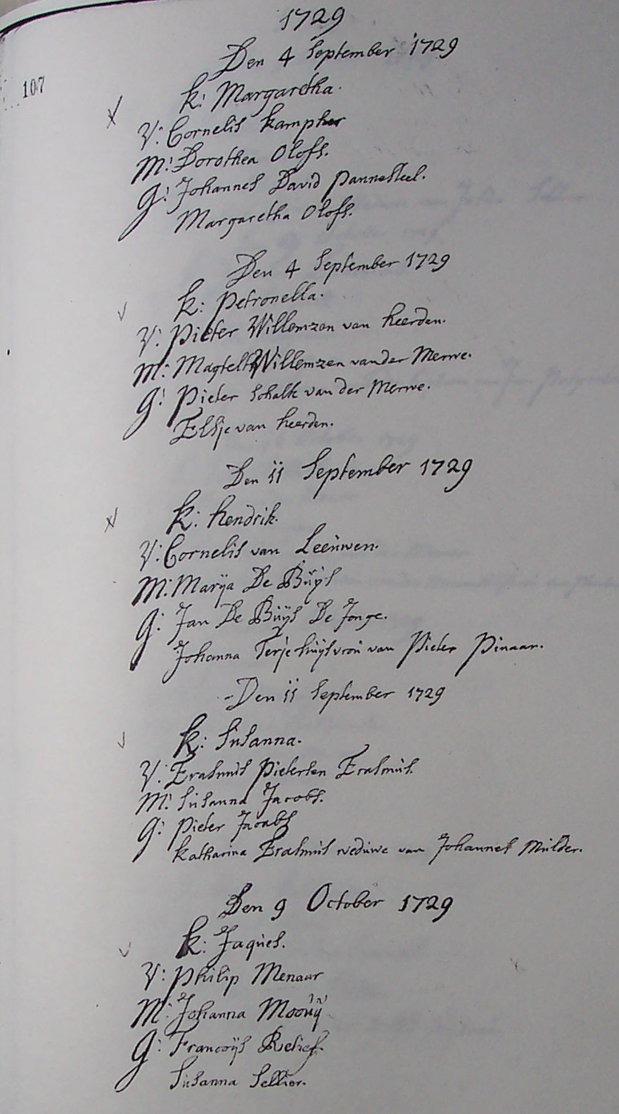 1729
Den 4 September 1729
107
k: Margaretha.
V: Cornelis kampher
M: Dorothea Olofs.
G: Johannes David Pannesteel.
Margaretha Olofs.
Den 4 September 1729
k: Petronella.
V: Pieter Willemzen van heerden.
M: Magtelt Willemzen vander Merwe.
G: Pieter Schalk van der Merwe.
Elsje van heerden.
Den 11 September 1729
k: hendrik.
V: Cornelis van Leeuwen.
M: Marija De Büÿs
G: Jan De Büÿs De Jonge.
Johanna Terje huÿsvroü van Pieter Pinaar.
Den 11 September 1729
k: Susanna.
V: Erasmus Pietersen Erasmus.
M: Susanna Jacobs.
G: Pieter Jacobs
katharina Erasmus weduwe van Johannes Mulder.
Den 9 October 1729
k: Jaques.
V: Philip Menaar
M: Johanna Mooüÿ
G: Francoijs Retief
Susanna Sellier.